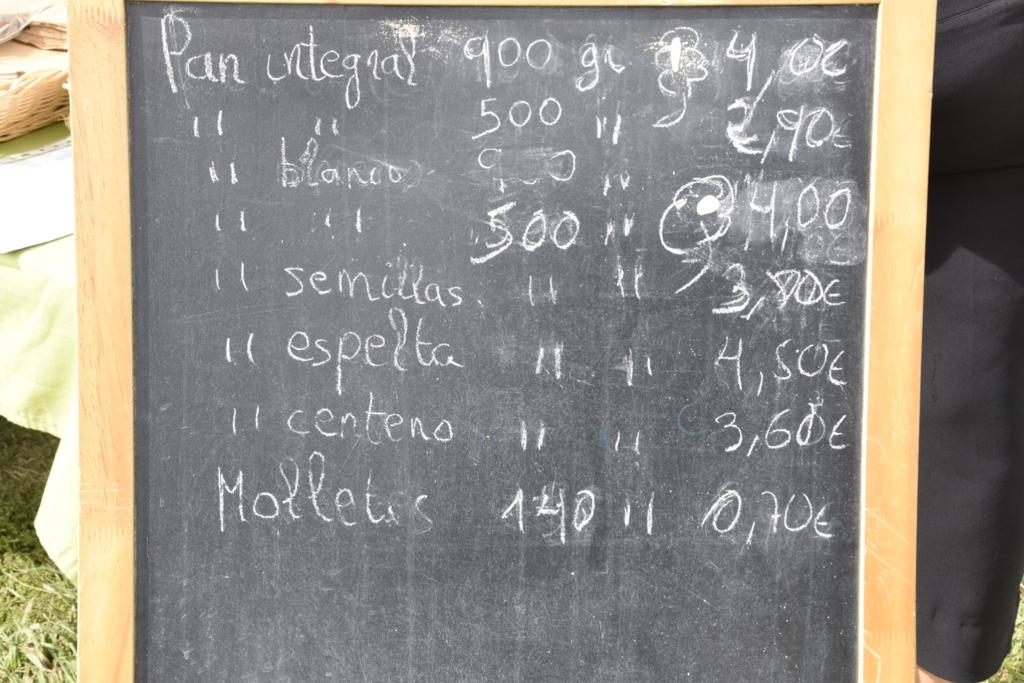 Pan integral 900 gr 4,00€
" " 500 " 2,90€
" blanco 900 "
" " 500 " 4,00
" semillas " " 3,80€
" espelta " " 4,50€
" centeno " " 3,60€
Molletes 140 " 0,70€